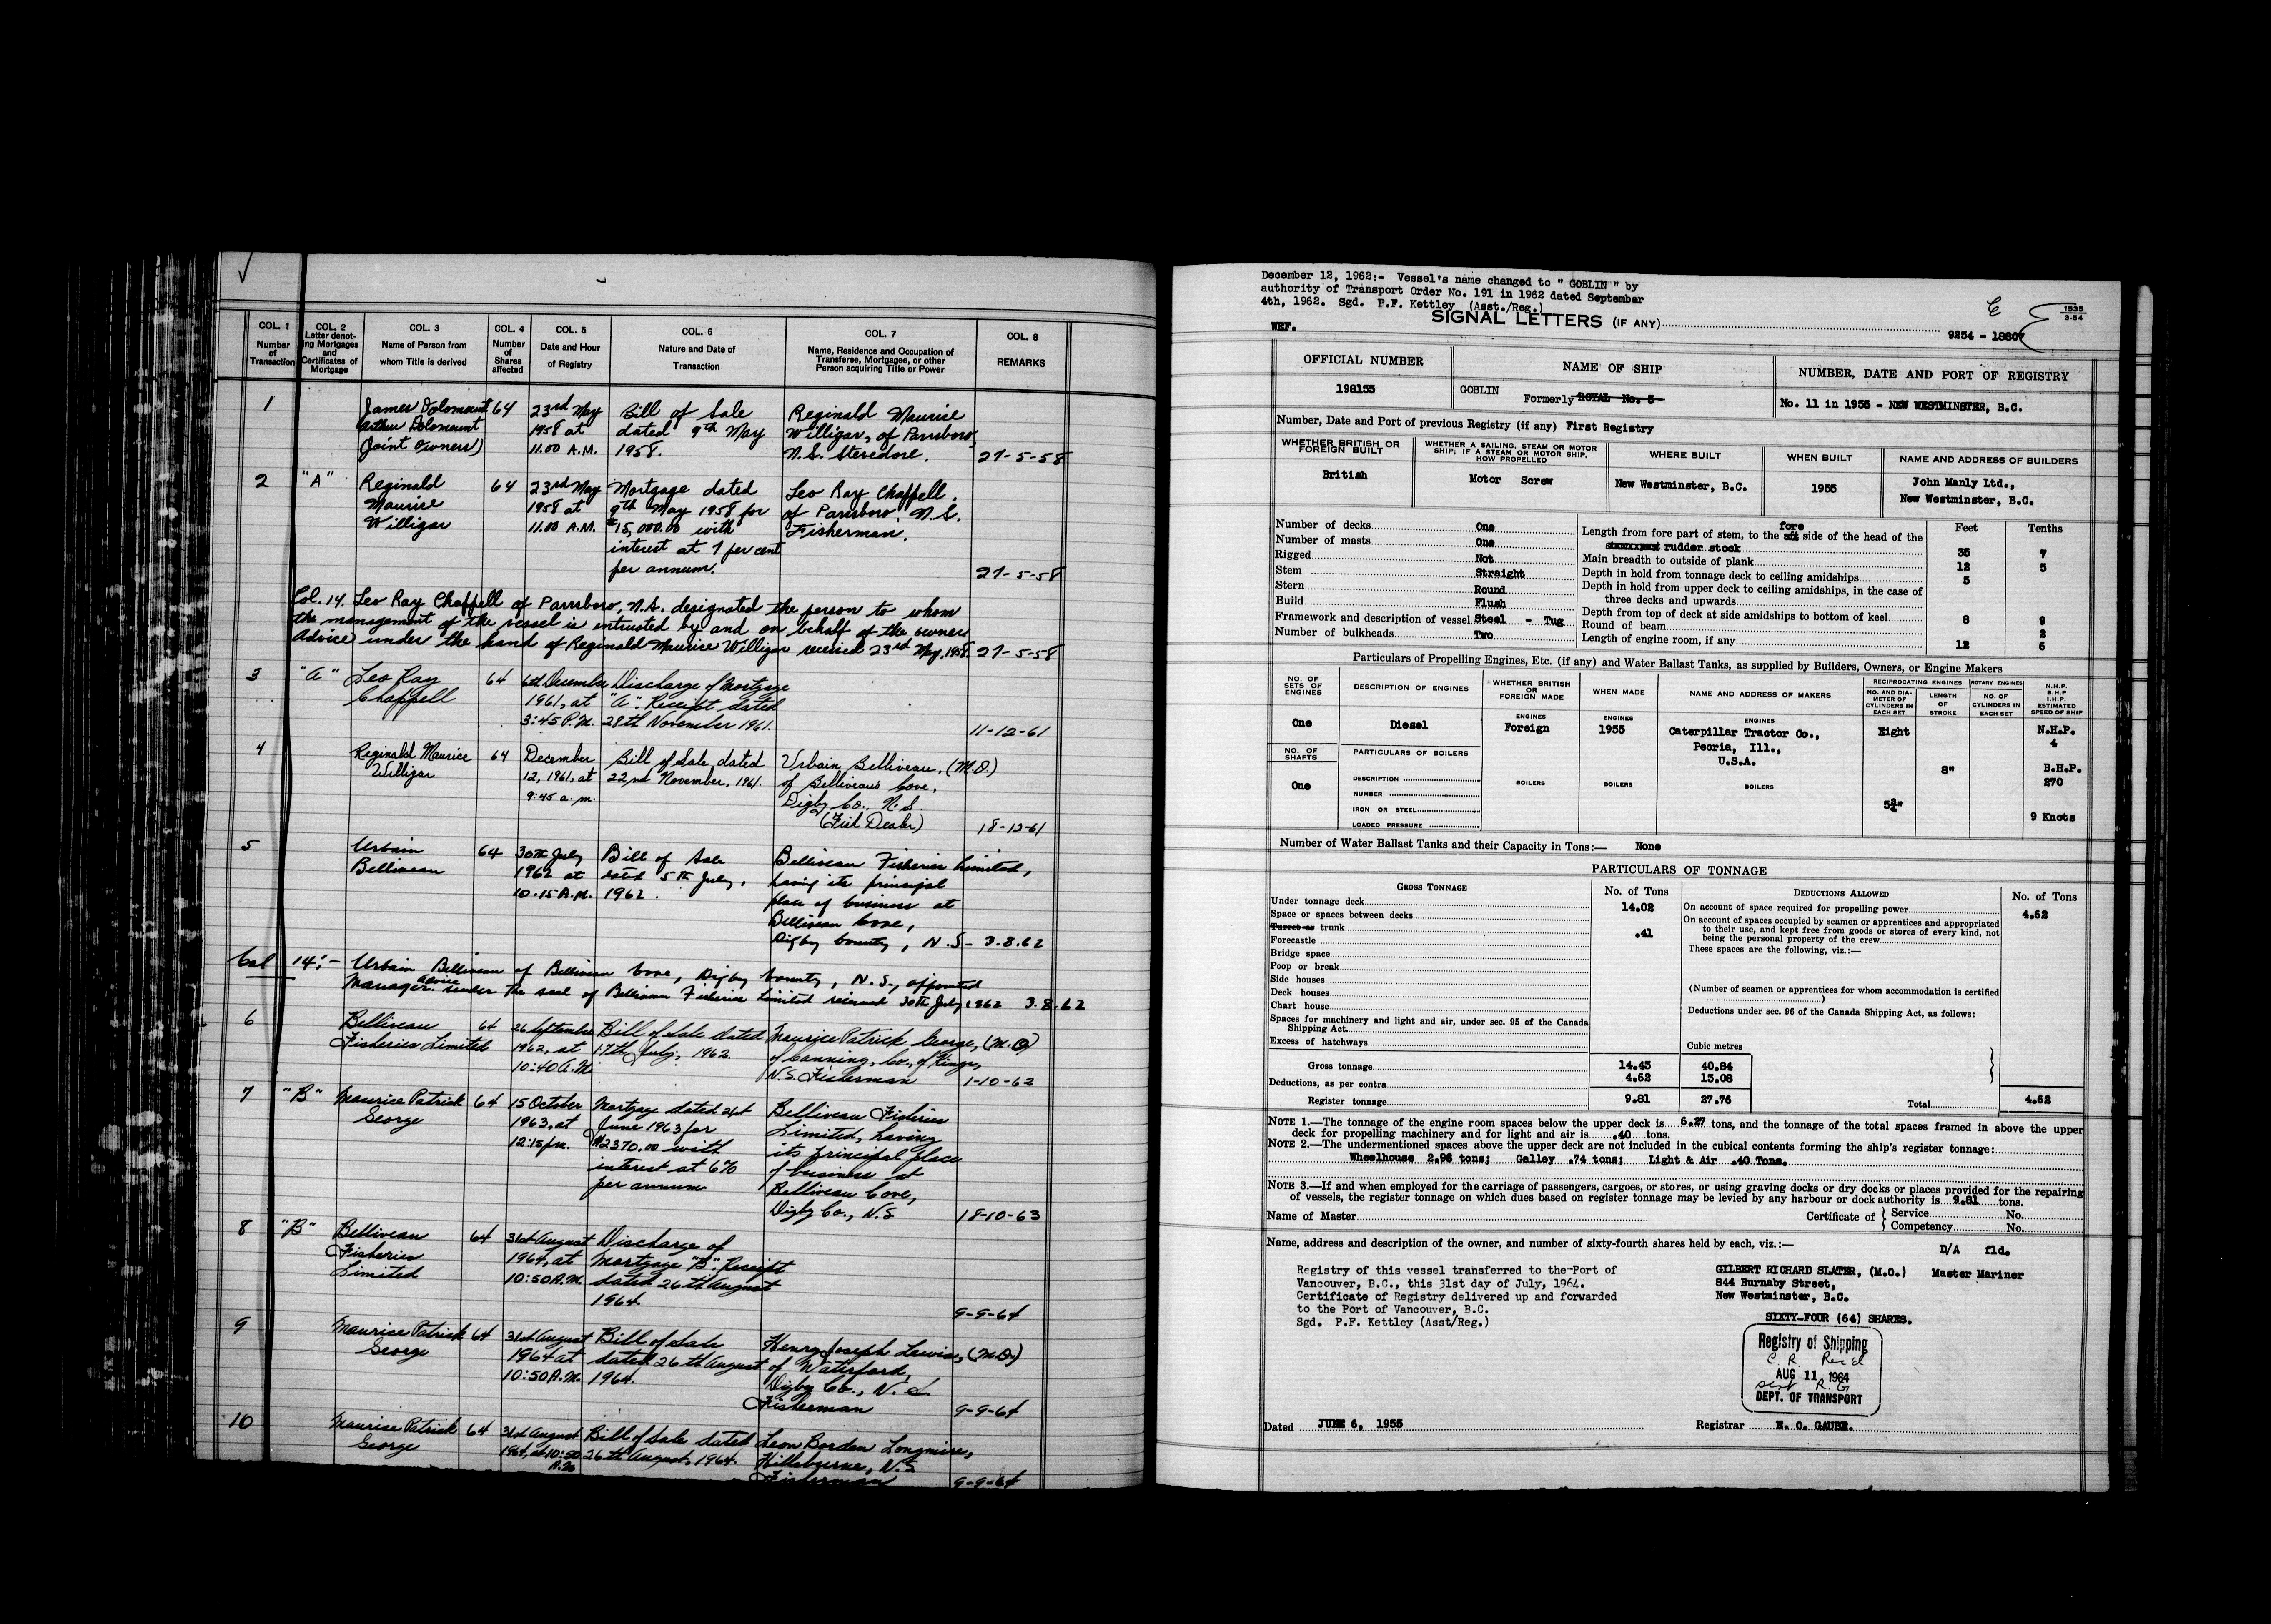 COL. 1 Number of Transaction
COL. 2 Letter denot-ing Mortgages and Certificates of Mortgage
COL. 3 Name of Person from whom Title is derived
COL. 4 Number of Shares affected
COL. 5 Date and Hour of Registry
COL. 6 Nature and Date of Transaction
COL. 7 Name, Residence and Occupation of Transferee, Mortgagee, or other Person acquiring Title or Power
COL. 8 REMARKS
1 James Dolomount 64 23rd May Bill of Sale Reginald Maurice
Arthur Dolomount 1958 at dated 9th May Willigar, of Parrsboro,
(Joint Owners) 11.00 A.M. 1958. N.S. Stevedore. 27-5-58
2 "A" Reginald 64 23rd May Mortgage dated Leo Ray Chappell,
Maurice 1958 at 9th May 1958 for of Parrsboro, N.S.
Willigar 11.00 A.M. $15,000.00 with Fisherman.
interest at 7 per cent
per annum. 27-5-58
Col. 14. Leo Ray Chappell of Parrsboro, N.S. designated the person to whom
the management of the vessel is entrusted by and on behalf of the owner
Advice under the hand of Reginald Maurice Willigar received 23rd May, 1958. 27-5-58
3 "A" Leo Ray 64 6th December Discharge of Mortgage
Chappell 1961, at "A". Receipt dated
3:45 P.M. 28th November 1961. 11-12-61
4 Reginald Maurice 64 December Bill of Sale, dated Urbain Belliveau, (M.O.)
Willigar 12, 1961, at 22nd November, 1961. of Belliveaus Cove,
9:45 a.m. Digby Co., N.S.
(Fish Dealer) 18-12-61
5 Urbain 64 30th July Bill of Sale Belliveau Fisheries Limited,
Belliveau 1962 at dated 5th July, having its principal
10.15 A.M. 1962. place of business at
Belliveau Cove,
Digby County, N.S- 3.8.62
Col 14:- Urbain Belliveau of Belliveau Cove, Digby County, N.S., appointed
Manager. Advice under the seal of Belliveau Fisheries Limited received 30th July, 1962 3.8.62
6 Belliveau 64 26 September Bill of Sale dated Maurice Patrick George, (M.O)
Fisheries Limited 1962, at 17th July, 1962. of Canning, Co., of Kings,
10:40 A.M N.S. Fisherman 1-10-62
7 "B" Maurice Patrick 64 15 October Mortgage dated 21st Belliveau Fisheries
George 1963, at June 1963 for Limited, having
12:15 p.m. $2370.00 with its principal place
interest at 6% of business at
per annum Belliveau Cove,
Digby Co., N.S 18-10-63
8 "B" Belliveau 64 31st August Discharge of
Fisheries 1964, at Mortgage "B". Receipt
Limited 10:50 A.M. dated 26th August
1964. 9-9-64
9 Maurice Patrick 64 31st August Bill of Sale Henry Joseph Lewis, (M.O.)
George 1964 at dated 26th August of Waterford,
10:50 A.M. 1964. Digby Co., N.S.
Fisherman 9-9-64
10 Maurice Patrick 64 31st August Bill of Sale dated Leon Borden Longmire,
George 1964, at 10:50 26th August, 1964. Hillsburne, N.S
A.M Fisherman 9-9-64
December 12, 1962:- Vessel's name changed to " GOBLIN " by
authority of Transport Order No. 191 in 1962 dated September
4th, 1962. Sgd. P.F. Kettley (Asst./Reg.)
SIGNAL LETTERS (IF ANY)
1535
3-54
WKF. 9254 - 18807
OFFICIAL NUMBER NAME OF SHIP NUMBER, DATE AND PORT OF REGISTRY
198155 GOBLIN
Formerly ROYAL No. 5 No. 11 in 1955 - NEW WESTMINSTER, B.C.
Number, Date and Port of previous Registry (if any) First Registry
WHETHER BRITISH OR FOREIGN BUILT
WHETHER A SAILING, STEAM OR MOTOR SHIP; IF A STEAM OR MOTOR SHIP, HOW PROPELLED
WHERE BUILT WHEN BUILT NAME AND ADDRESS OF BUILDERS
British Motor Screw New Westminster, B.C. 1955 John Manly Ltd.,
New Westminster, B.C.
Number of decks One
Number of masts One
Rigged Not
Stem Straight
Stern Round
Build Flush
Framework and description of vessel Steel - Tug
Number of bulkheads Two
Feet Tenths
Length from fore part of stem, to the aft fore side of the head of the
rudder stock 35 7
Main breadth to outside of plank 12 5
Depth in hold from tonnage deck to ceiling amidships 5
Depth in hold from upper deck to ceiling amidships, in the case of
three decks and upwards
Depth from top of deck at side amidships to bottom of keel 8 9
Round of beam 2
Length of engine room, if any 12 6
Particulars of Propelling Engines, Etc. (if any) and Water Ballast Tanks, as supplied by Builders, Owners, or Engine Makers
NO. OF SETS OF ENGINES
DESCRIPTION OF ENGINES
WHETHER BRITISH OR FOREIGN MADE
WHEN MADE
NAME AND ADDRESS OF MAKERS
RECIPROCATING ENGINES
NO. AND DIA-METER OF CYLINDERS IN EACH SET
LENGTH OF STROKE
ROTARY ENGINES
NO. OF CYLINDERS IN EACH SET
N.H.P. B.H.P I.H.P. ESTIMATED SPEED OF SHIP
ENGINES ENGINES ENGINES
One Diesel Foreign 1955 Caterpillar Tractor Co., Eight N.H.P.
Peoria, Ill., 4
U.S.A.
NO. OF SHAFTS PARTICULARS OF BOILERS
8" B.H.P.
270
One DESCRIPTION BOILERS BOILERS BOILERS
NUMBER
IRON OR STEEL 5¾"
LOADED PRESSURE 9 Knots
Number of Water Ballast Tanks and their Capacity in Tons:— None
PARTICULARS OF TONNAGE
GROSS TONNAGE No. of Tons DEDUCTIONS ALLOWED No. of Tons
Under tonnage deck 14.02
Space or spaces between decks
Turret or trunk .41
Forecastle
Bridge space
Poop or break
Side houses
Deck houses
Chart house
Spaces for machinery and light and air, under sec. 95 of the Canada
Shipping Act
Excess of hatchways
Cubic metres
Gross tonnage 14.43 40.84
Deductions, as per contra 4.62 13.08
Register tonnage 9.81 27.76
On account of space required for propelling power 4.62
On account of spaces occupied by seamen or apprentices and appropriated
to their use, and kept free from goods or stores of every kind, not
being the personal property of the crew
These spaces are the following, viz.:—
(Number of seamen or apprentices for whom accommodation is certified
)
Deductions under sec. 96 of the Canada Shipping Act, as follows:
Total 4.62
NOTE 1.—The tonnage of the engine room spaces below the upper deck is 6.27 tons, and the tonnage of the total spaces framed in above the upper
deck for propelling machinery and for light and air is .40 tons.
NOTE 2.—The undermentioned spaces above the upper deck are not included in the cubical contents forming the ship's register tonnage:
Wheelhouse 2.96 tons; Galley .74 tons; Light & Air .40 Tons.
NOTE 3.—If and when employed for the carriage of passengers, cargoes, or stores, or using graving docks or dry docks or places provided for the repairing
of vessels, the register tonnage on which dues based on register tonnage may be levied by any harbour or dock authority is 9.81 tons.
Name of Master Certificate of { Service No.
Competency No.
Name, address and description of the owner, and number of sixty-fourth shares held by each, viz.:—
D/A fld.
Registry of this vessel transferred to the Port of
Vancouver, B.C., this 31st day of July, 1964.
Certificate of Registry delivered up and forwarded
to the Port of Vancouver, B.C.
Sgd. P.F. Kettley (Asst/Reg.)
GILBERT RICHARD SLATER, (M.O.) Master Mariner
844 Burnaby Street,
New Westminster, B.C.
SIXTY-FOUR (64) SHARES.
Registry of Shipping
C. R. Rec'd
AUG 11 1964
sent R.G
DEPT. OF TRANSPORT
Dated JUNE 6, 1955 Registrar E. O. GAUER.